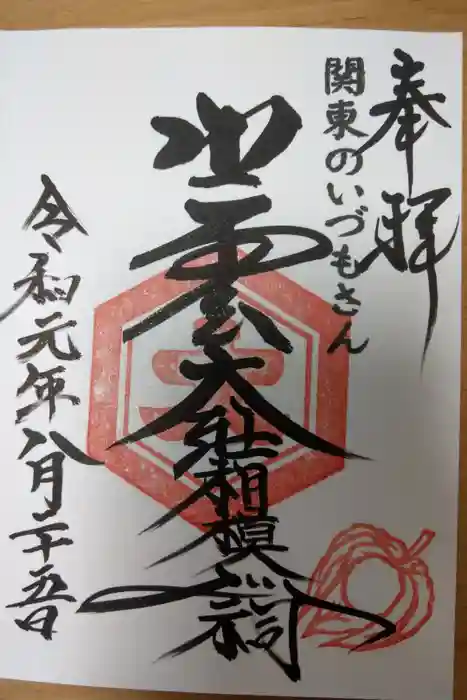 奉拝
関東のいづもさん
出雲大社相模分祠
令和元年八月二十五日